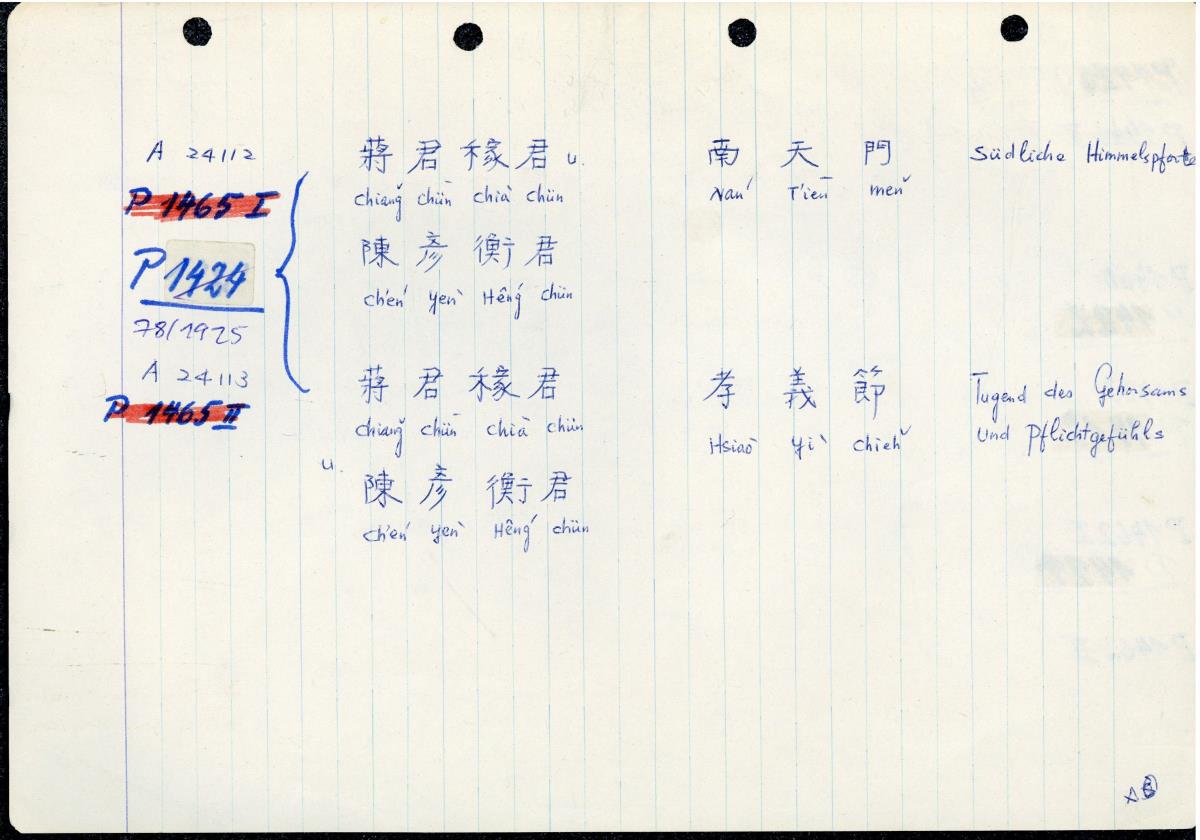 A 24112 蔣君稼君 u. 南天門 Südliche Himmelspforte
P 1465 I chiang̃ chün̄ chià chün Nań T'ien̄ meň
陳彥衡君
P 1424 ch'eń yeǹ Hêng̃ chün
78/1925
A 24113 蔣君稼君 孝義節 Tugend des Gehorsams
P 1465 II chiang̃ chün̄ chià chün Hsiaò yì chieh̃ und Pflichtgefühls
u. 陳彥衡君
ch'eń yeǹ Hêng̃ chün